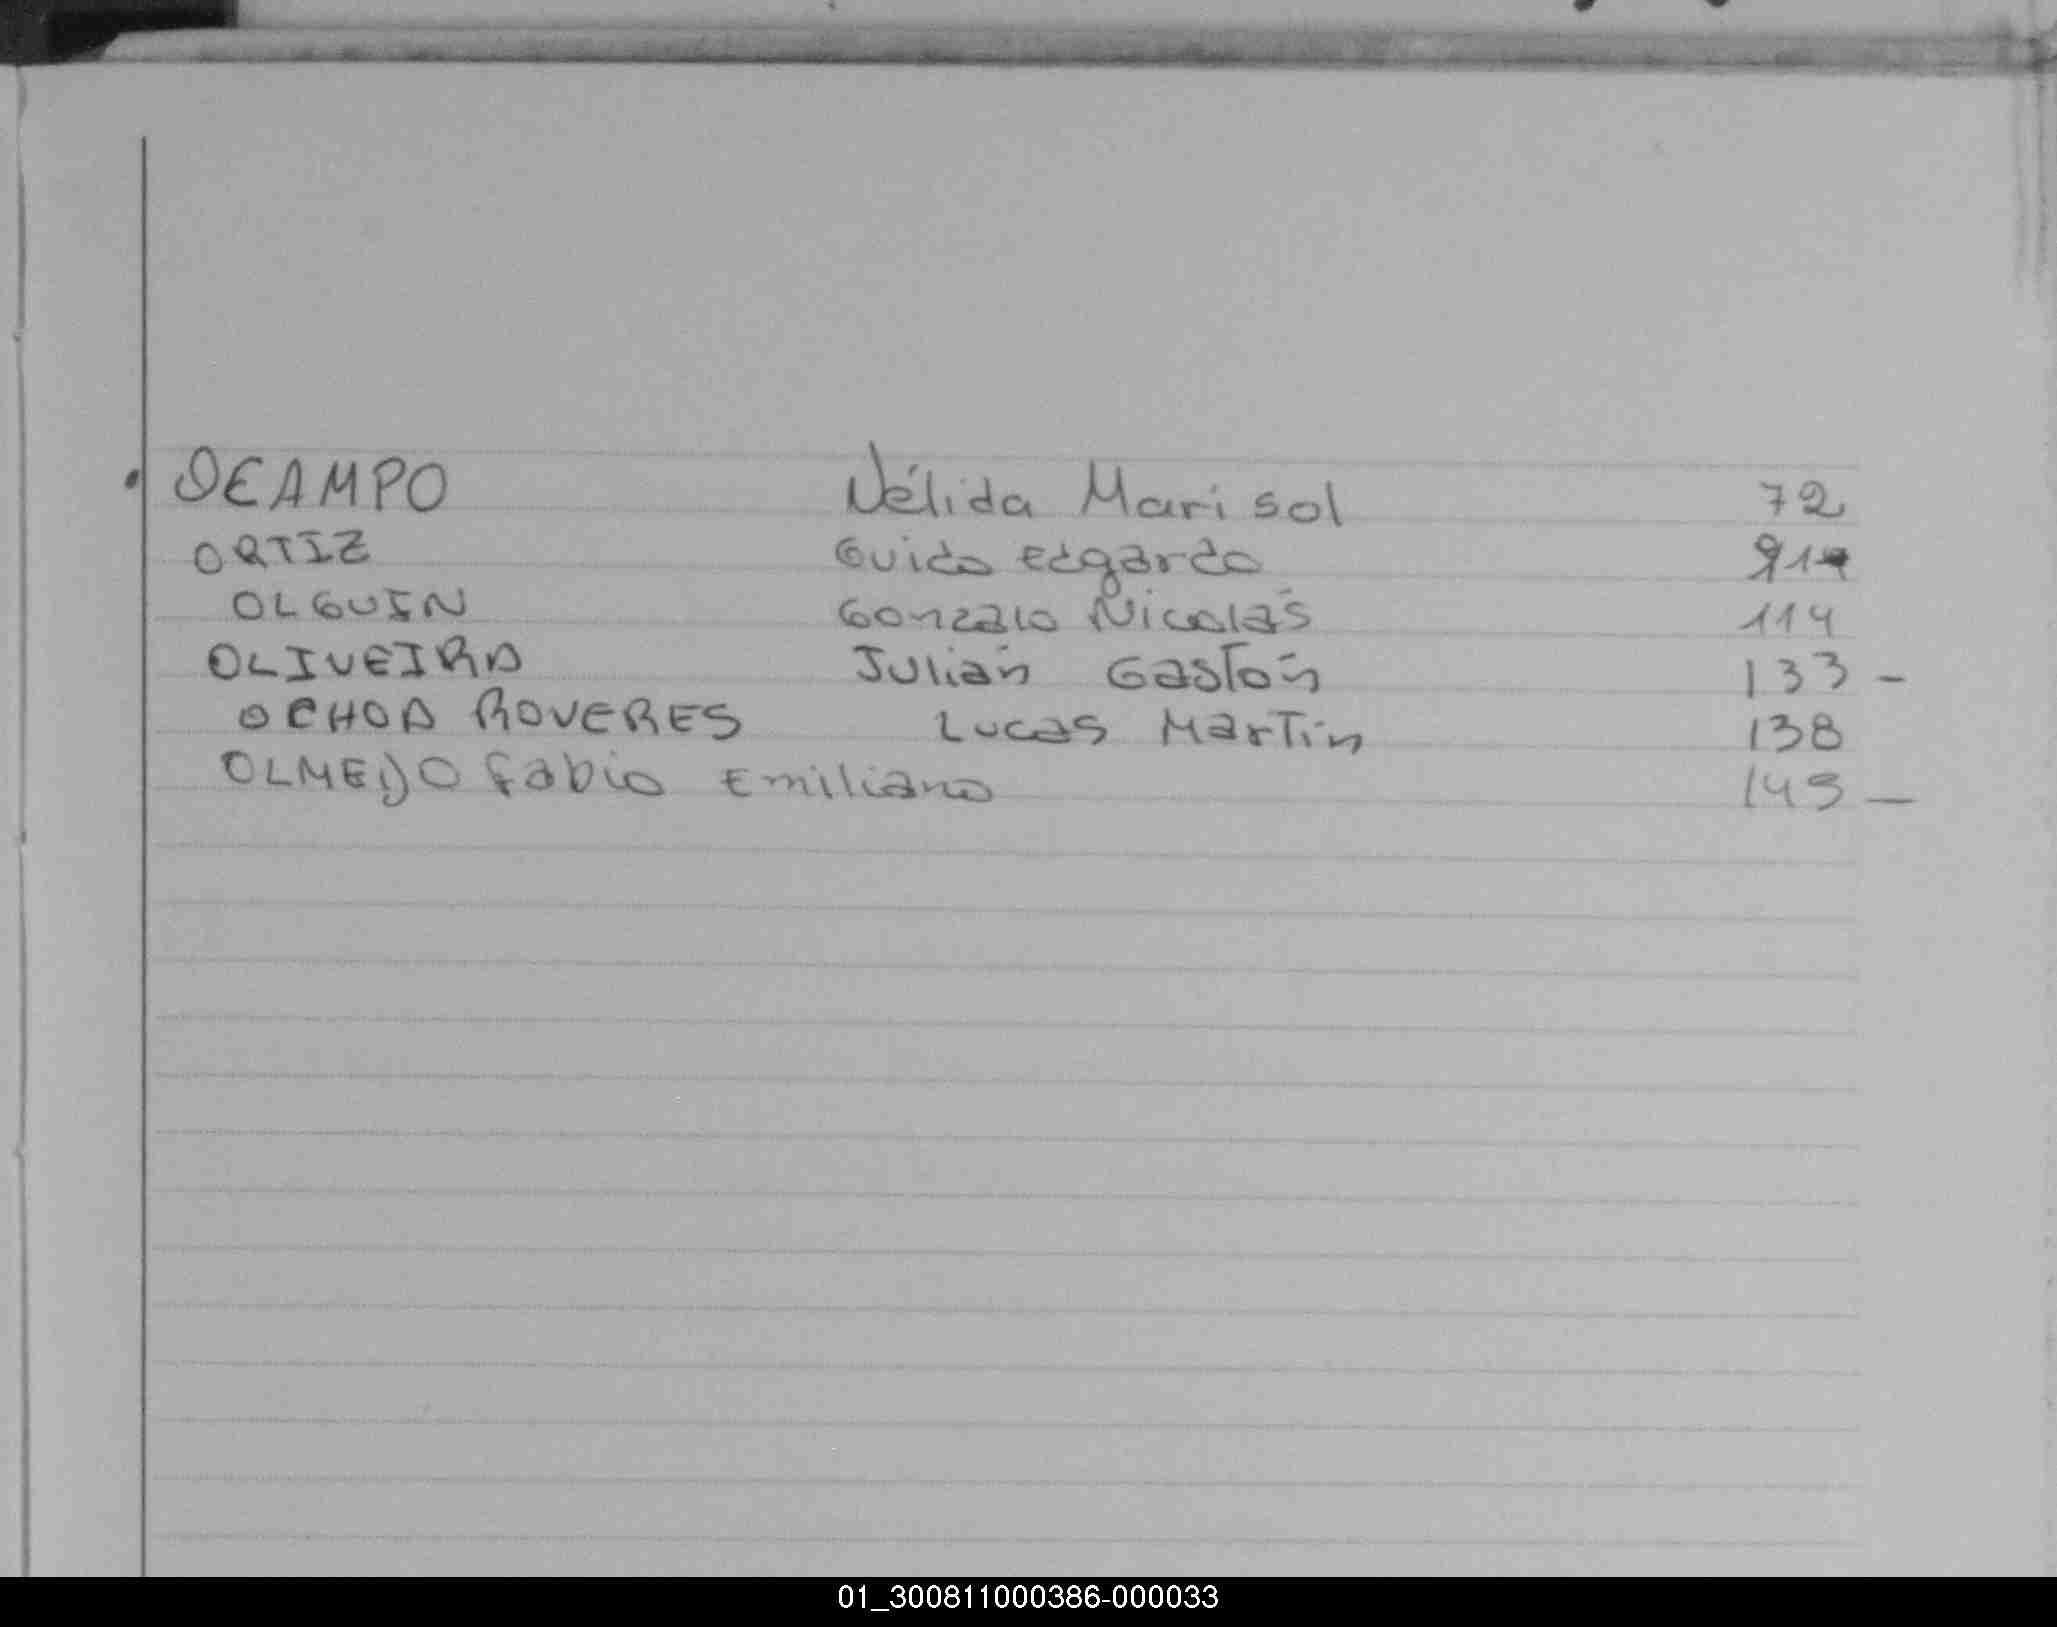 OCAMPO Nélida Marisol 72
ORTIZ Guido Edgardo
OLGUIN Gonzalo Nicolás 114
OLIVEIRA Julián Gastón 133 -
OCHOA ROVERES Lucas Martín 138
OLMEDO Fabio Emiliano 145 —
01_300811000386-000033